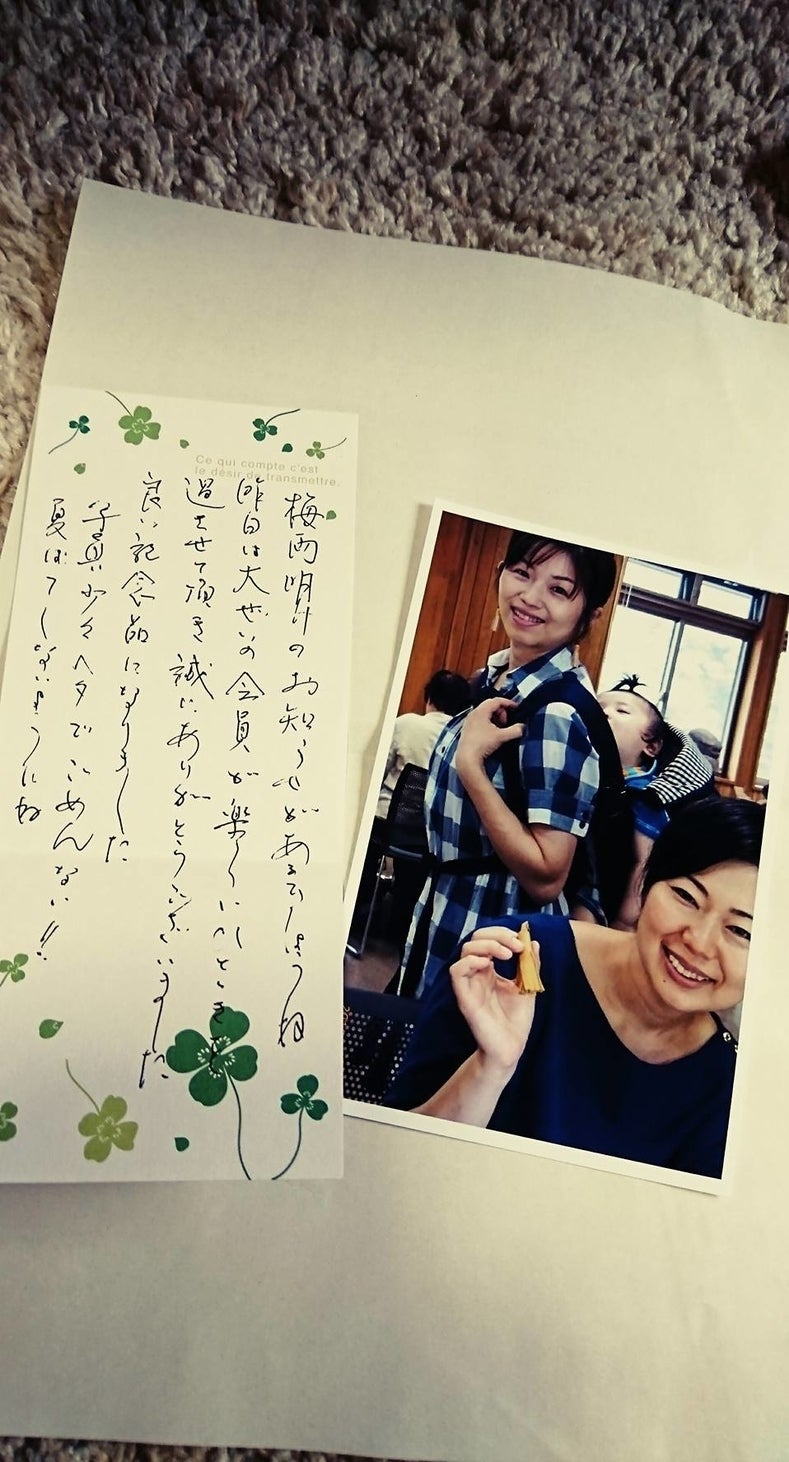 Ce qui compte c'est
le désir de transmettre.
梅雨明けのお知らせがあるでしょうね
昨日は大ぜいの会員が楽しいひとときを
過させて頂き誠にありがとうございました
良い記念品になりました
写真少々ヘタでごめんない!!
夏ばてしないようにね